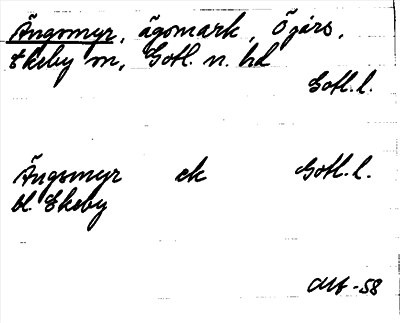 Ängsmyr, ägomark, Öjärs,
Ekeby sn, Gotl. n. hd
Gotl. l.
Ängsmyr ek Gotl. l.
bl. Ekeby
-58